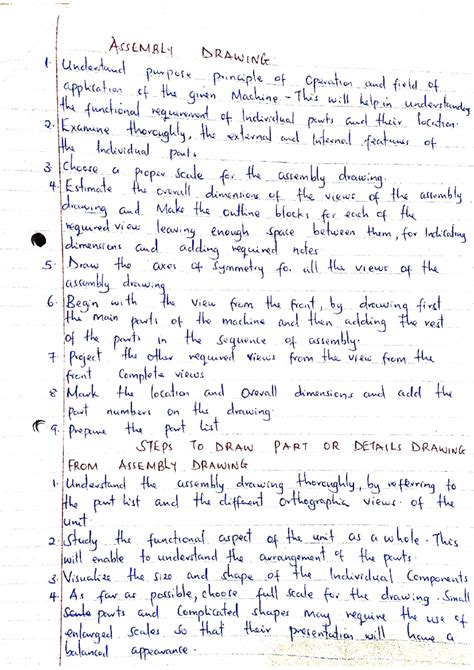 ASSEMBLY DRAWING
1. Understand purpose principle of Operation and field of
application of the given Machine - This will help in understanding
the functional requirement of Individual parts and their location.
2. Examine thoroughly, the external and Internal features of
the Individual parts.
3 Choose a proper scale for the assembly drawing.
4. Estimate the overall dimensions of the views of the assembly
drawing and Make the outline blocks for each of the
required view leaving enough space between them, for Indicating
dimensions and adding required notes
5. Draw the axes of symmetry for all the views of the
assembly drawing
6. Begin with the view from the front, by drawing first
the main parts of the machine and then adding the rest
of the parts in the sequence of assembly.
7. Project the other required views from the view from the
front Complete views
8 Mark the location and Overall dimensions and add the
part numbers on the drawing.
9. Prepare the part list
STEPS TO DRAW PART OR DETAILS DRAWING
FROM ASSEMBLY DRAWING
1. Understand the assembly drawing thoroughly, by referring to
the part list and the different Orthographic views of the
Unit
2. Study the functional aspect of the unit as a whole. This
will enable to understand the arrangement of the parts.
3. Visualize the size and shape of the Individual Components
4. As far as possible, choose full scale for the drawing. Small
parts and Complicated shapes may require the use of
enlarged scales so that their presentation will have a
balanced appearance.